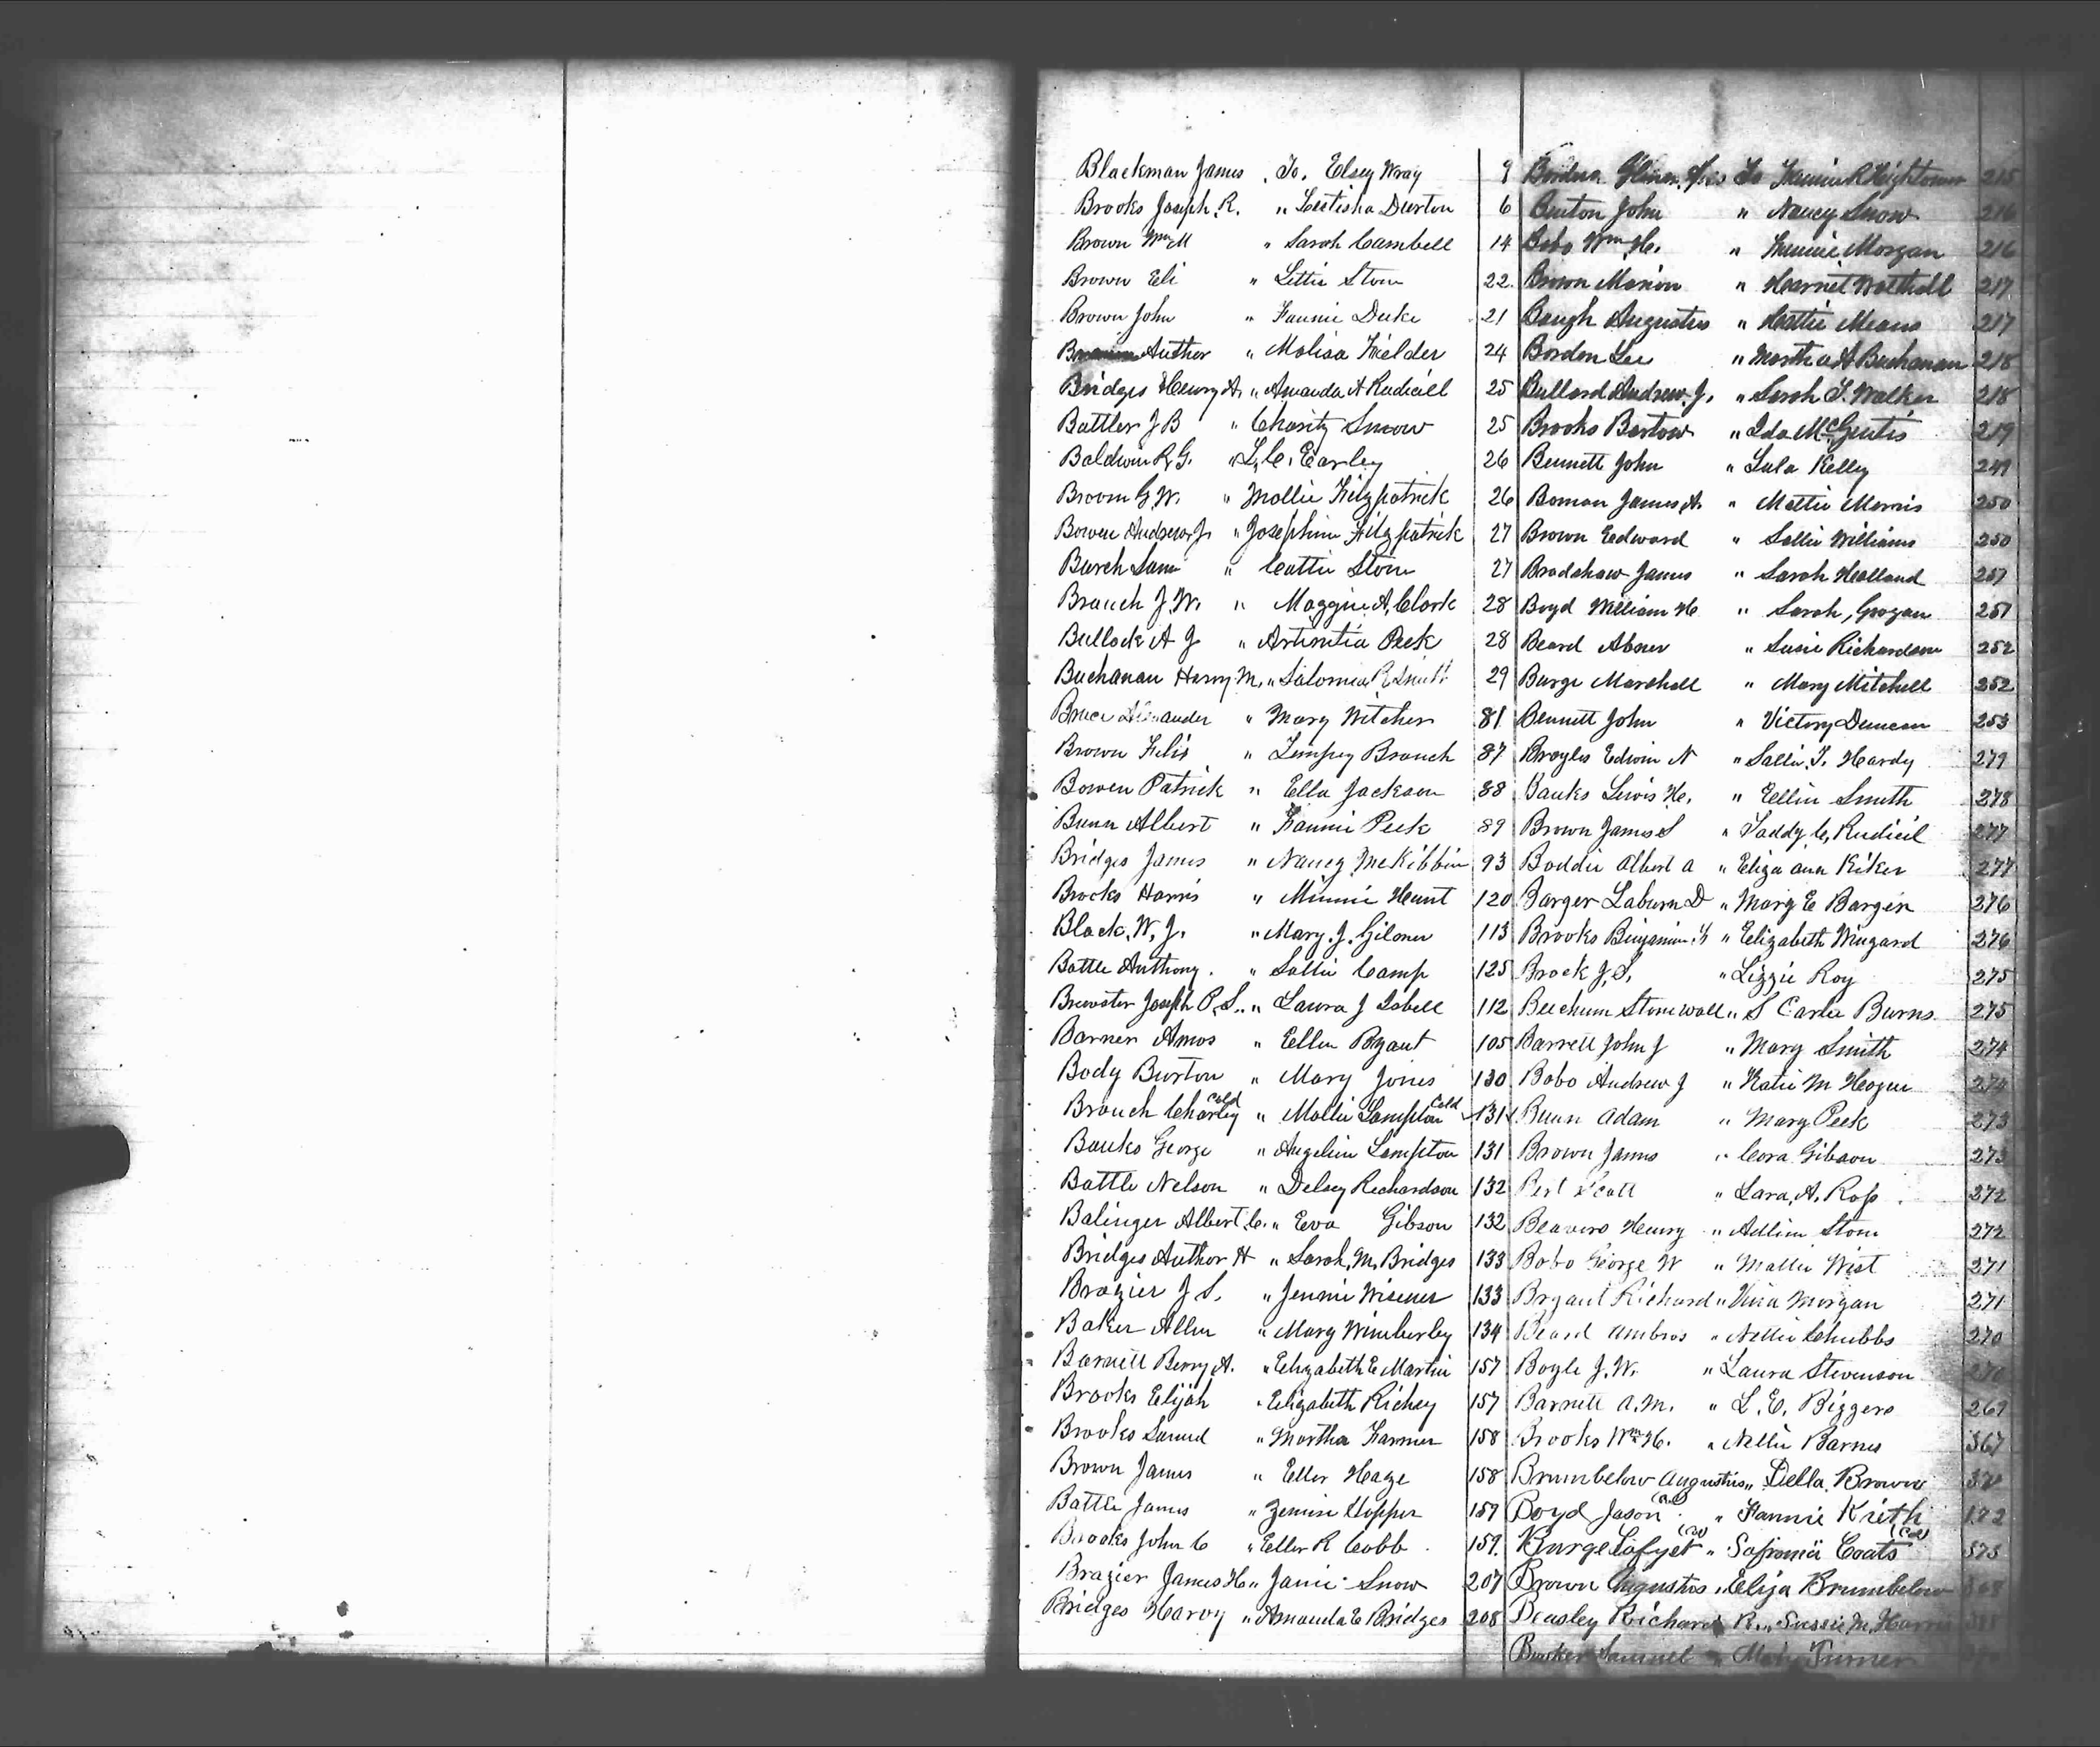 Blackman James . To. Elsey Wray 9
Brooks Joseph. R. " Letisha Durton 6
Brown Wm M " Sarah Cambell 14
Brown Eli " Lettie Stone 22.
Brown John " Fannie Duke 21
Author " Malisa Fielder 24
Bridges Henry A. " Amanda A Rudicill 25
Battler J B " Charity Snow 25
Baldwin R, G. " L, C, Earley 26
Broom G. W. " Mollie Fitzpatrick 26
Bowen Andrew J. " Josephine Fitzpatrick 27
Burch Sam " Cattie Stone 27
Branch J. W. " Maggie A, Clark 28
Bullock A J " Artimitia Peek 28
Buchanan Harry M, " Salomia R Smith 29
Bruce Alexander " Mary Witcher 81
Brown Felix " Limpsy Branch 87
Bowen Patrick " Ella Jackson 88
Bunn Albert " Fannie Peek 89
Bridges James " Nancy McKibbin 93
Brooks Harris " Minnie Hunt 120
Black, W, J. " Mary. J. Gilmer 113
Battle Anthony. " Sallie Camp 125
Brewster Joseph P. S.. " Laura J Isbell 112
Barner Amos " Ellen Bryant 105
Body Burton " Mary Jones 130
Branch Charley Cold " Mollie Lampton Cold 131
Banks George " Angeline Lampton 131
Battle Nelson " Delsey Richardson 132
Balinger Albert, C. " Eva Gibson 132
Bridges Author H " Sarah, M, Bridges 133
Brazier J S. " Jennie Wisener 133
Baker Allen " Mary Wimberley 134
Barnett Berry A. " Elizabeth E Martin 157
Brooks Elijah " Elizabeth Richey 157
Brooks Samuel " Martha Farmer 158
Brown James " Eller Haze 158
Battle James " Hopper 157
Brooks John C " Eller R Cobb. 159.
Brazier James H " Janie Snow 207
Bridges Harvy " Amanda E Bridges 208
To Fannie R Hightower 215
Benton John " Nancy Snow 216
Bobo Wm H. " Fannie Morgan 216
Brown Marion " Harriet Wathall 217
Baugh Augustus " Hattie Means 217
Bordon Lee " Martha A Buchanan 218
Bullard Andrew. J. " Sarah T. Walker 218
Brooks Bartow " Ida McGintis 219
Bennett John " Lula Kelley 249
Boman James A. " Mattie Morris 250
Brown Eedward " Sallie Williams 250
Bradshaw James " Sarah Holland 251
Boyd William H " Sarah, Grogan 251
Beard Abner " Susie Richardson 252
Burge Marshall " Mary Mitchell 252
Bennett John " Victory Duncan 253
Broyles Edwin N " Sallie. T. Hardy 279
Banks Lewis H. " Eellin Smith 278
Brown James S " Taddy C, Rudicil 277
Boddie Albert A " Eliza ann Kiker 277
Barger Laburn D " Mary E Bargin 276
Brooks Binjamin F " Eelizabeth Wingard 276
Brock J, S, " Lizzie Roy 275
Beechum Stonewall " S Carlie Burns 275
Barrett John J " Mary Smith 274
Bobo Andrew J " Katie M Hogue 274
Bunn Adam " Mary Peek 273
Brown James " Cora Gibson 273
Scott " Lara, A. Ross. 272
Beavers Henry " Adline Stone 272
Bobo George W " Mallie West 271
Bryant Richard " Vina Morgan 271
Beard Ambros " Nellie Chubbs 270
Boyle J. W. " Laura Stevenson 270
Barnett A. M. " L. E. Biggers 269
Brooks Wm H. " Nellie Barnes 367
Brumbelow Augustus " Della Brown
Boyd Jason (col) " Fannie Krith
Burge Lafyet (col) " Safronia Coats (Col) 575
Brown Augustus " Eliza Brumbelow
Beasley Richard R. " Sussie M, Harris
Samuel " Turner